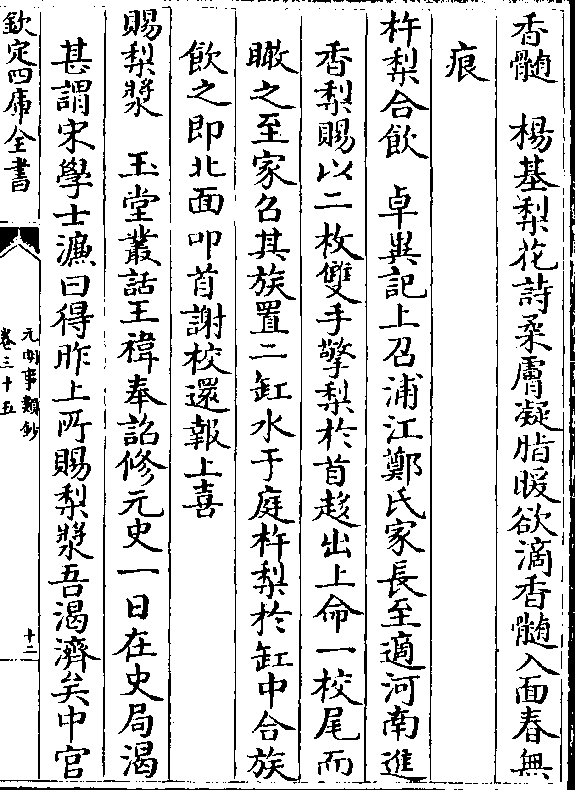 香髄　楊基棃花詩柔膚凝脂暖欲滴香髄入面春無
痕
杵棃合飲　卓異記上召浦江鄭氏家長至適河南進
香棃賜以二枚雙手擎棃於首趍出上命一校尾而
瞰之至家召其族置二缸水于庭杵棃於缸中合族
飲之即北面叩首謝校還報上喜
賜棃漿　玉堂叢話王褘奉詔修元史一日在史局渴
甚謂宋學士濂曰得昨上所賜棃漿吾渴濟矣中官
欽定四庫全書
元明事類鈔
卷三十五
十二